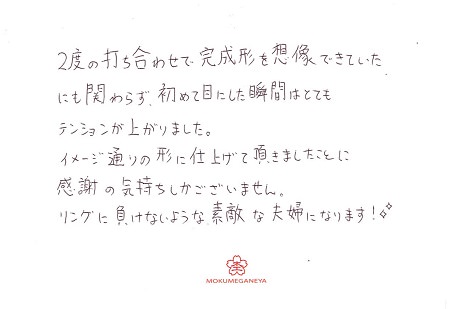 2度の打ち合わせで完成形を想像できていた
にも関わらず、初めて目にした瞬間はとても
テンションが上がりました。
イメージ通りの形に仕上げて頂きましたことに
感謝の気持ちしかございません。
リングに負けないような素敵な夫婦になります！
MOKUMEGANEYA